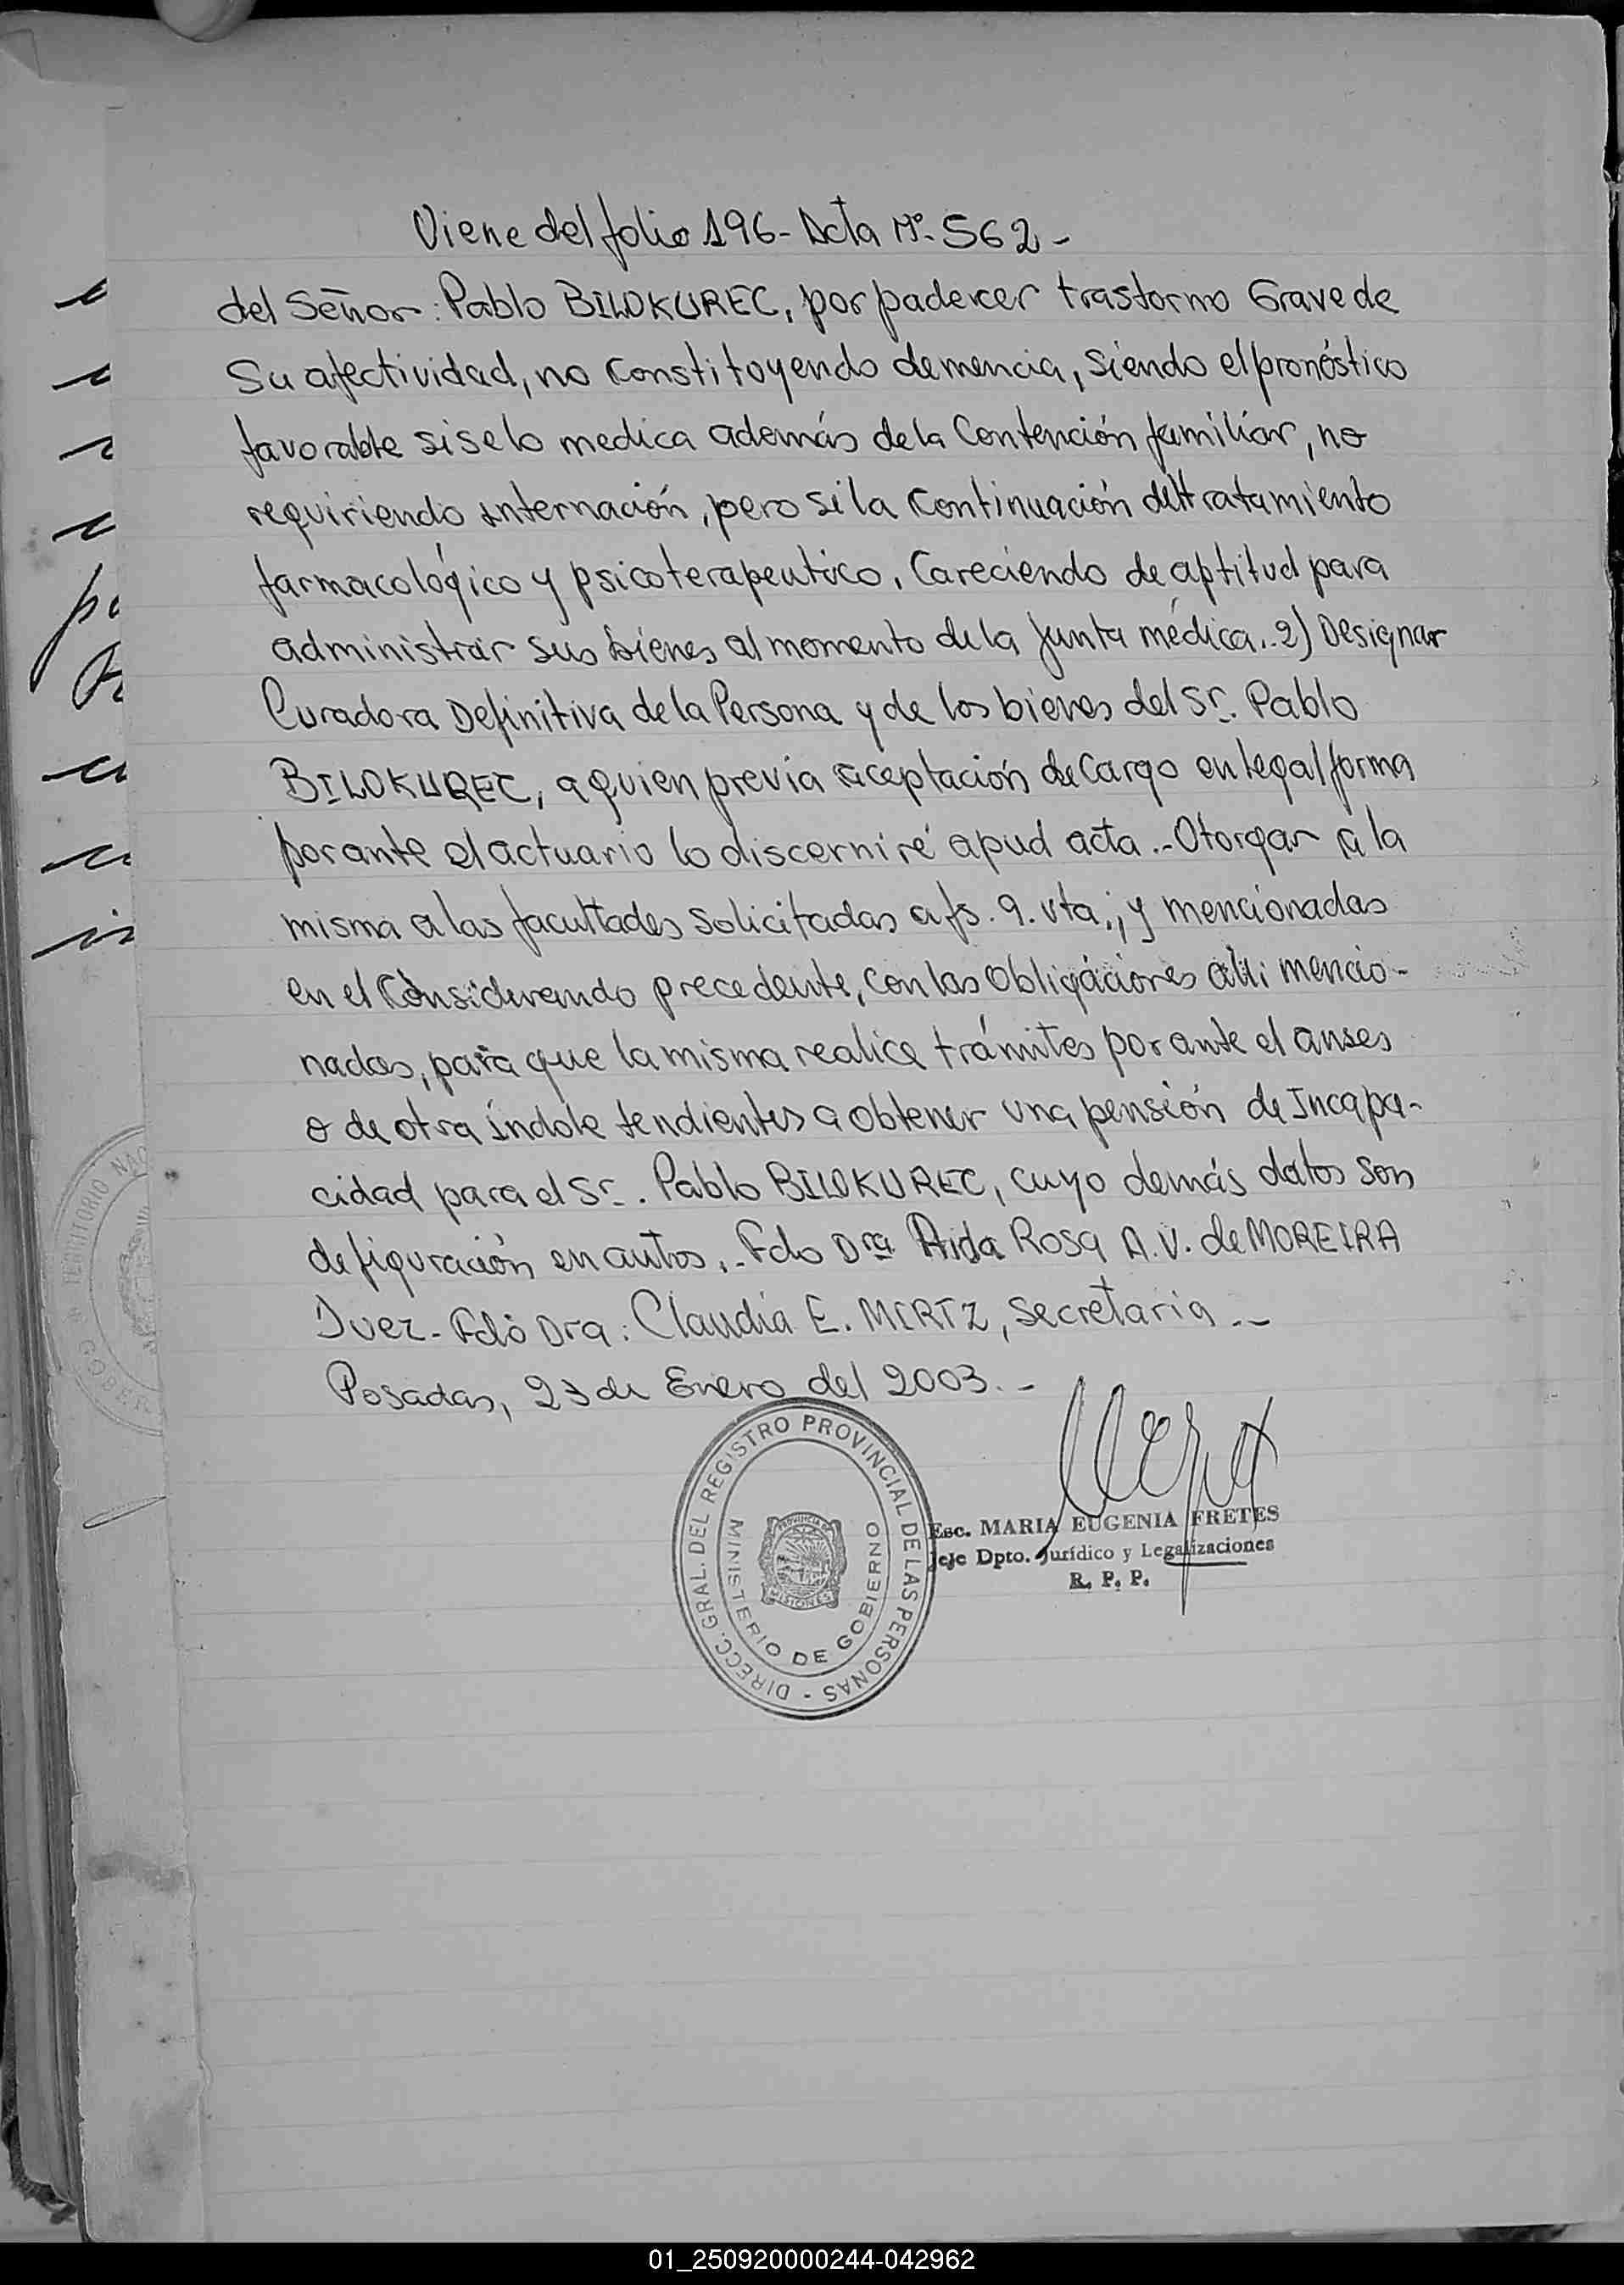 Viene del folio 196- Acta Nº- 562-
del Señor: Pablo BILOKUREC, por padecer trastorno Grave de
Su afectividad, no Constituyendo demencia, Siendo el pronóstico
favorable si se lo medica además de la Contención familiar, no
requiriendo internación, pero si la Continuación del tratamiento
farmacológico y psicoterapeutico, Careciendo de aptitud para
administrar sus bienes al momento de la Junta médica.. 2) Designar
Curadora Definitiva de la Persona y de los bienes del Sr. Pablo
BILOKUREC, a quien previa aceptación de Cargo en legal forma
por ante el actuario lo discerniré apud acta.- Otorgar a la
misma a las facultades Solicitadas a fs. 9. vta.; y mencionadas
en el Considerando precedente, con las Obligaciones alli mencio-
nadas, para que la misma realice trámites por ante el anses
o de otra índole tendientes a Obtener una pensión de Incapa-
cidad para el Sr. Pablo BILOKUREC, cuyo demás datos Son
de figuración en autos.- Fdo Dra Aida Rosa A.V. de MOREIRA
Juez- Fdo Dra: Claudia E. MERTZ, Secretaria.-
Posadas, 23 de Enero del 2003.-
DIRECC. GRAL. DEL REGISTRO PROVINCIAL DE LAS PERSONAS -
MINISTERIO DE GOBIERNO
PROVINCIA DE
MISIONES
Esc. MARIA EUGENIA FRETES
Jefe Dpto. Jurídico y Legalizaciones
R. P. P.
TERRITORIO NAC
GOBER
01_250920000244-042962